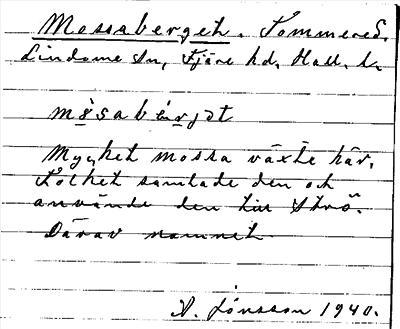 Mossaberget. Tommered.
Lindome sn, Fjäre hd. Hall. l.
mɷ̀sabǽrjət
Mycket mossa växte här.
Folket samlade den och
använde den till strö.
Därav namnet.
A. Jónsson 1940.